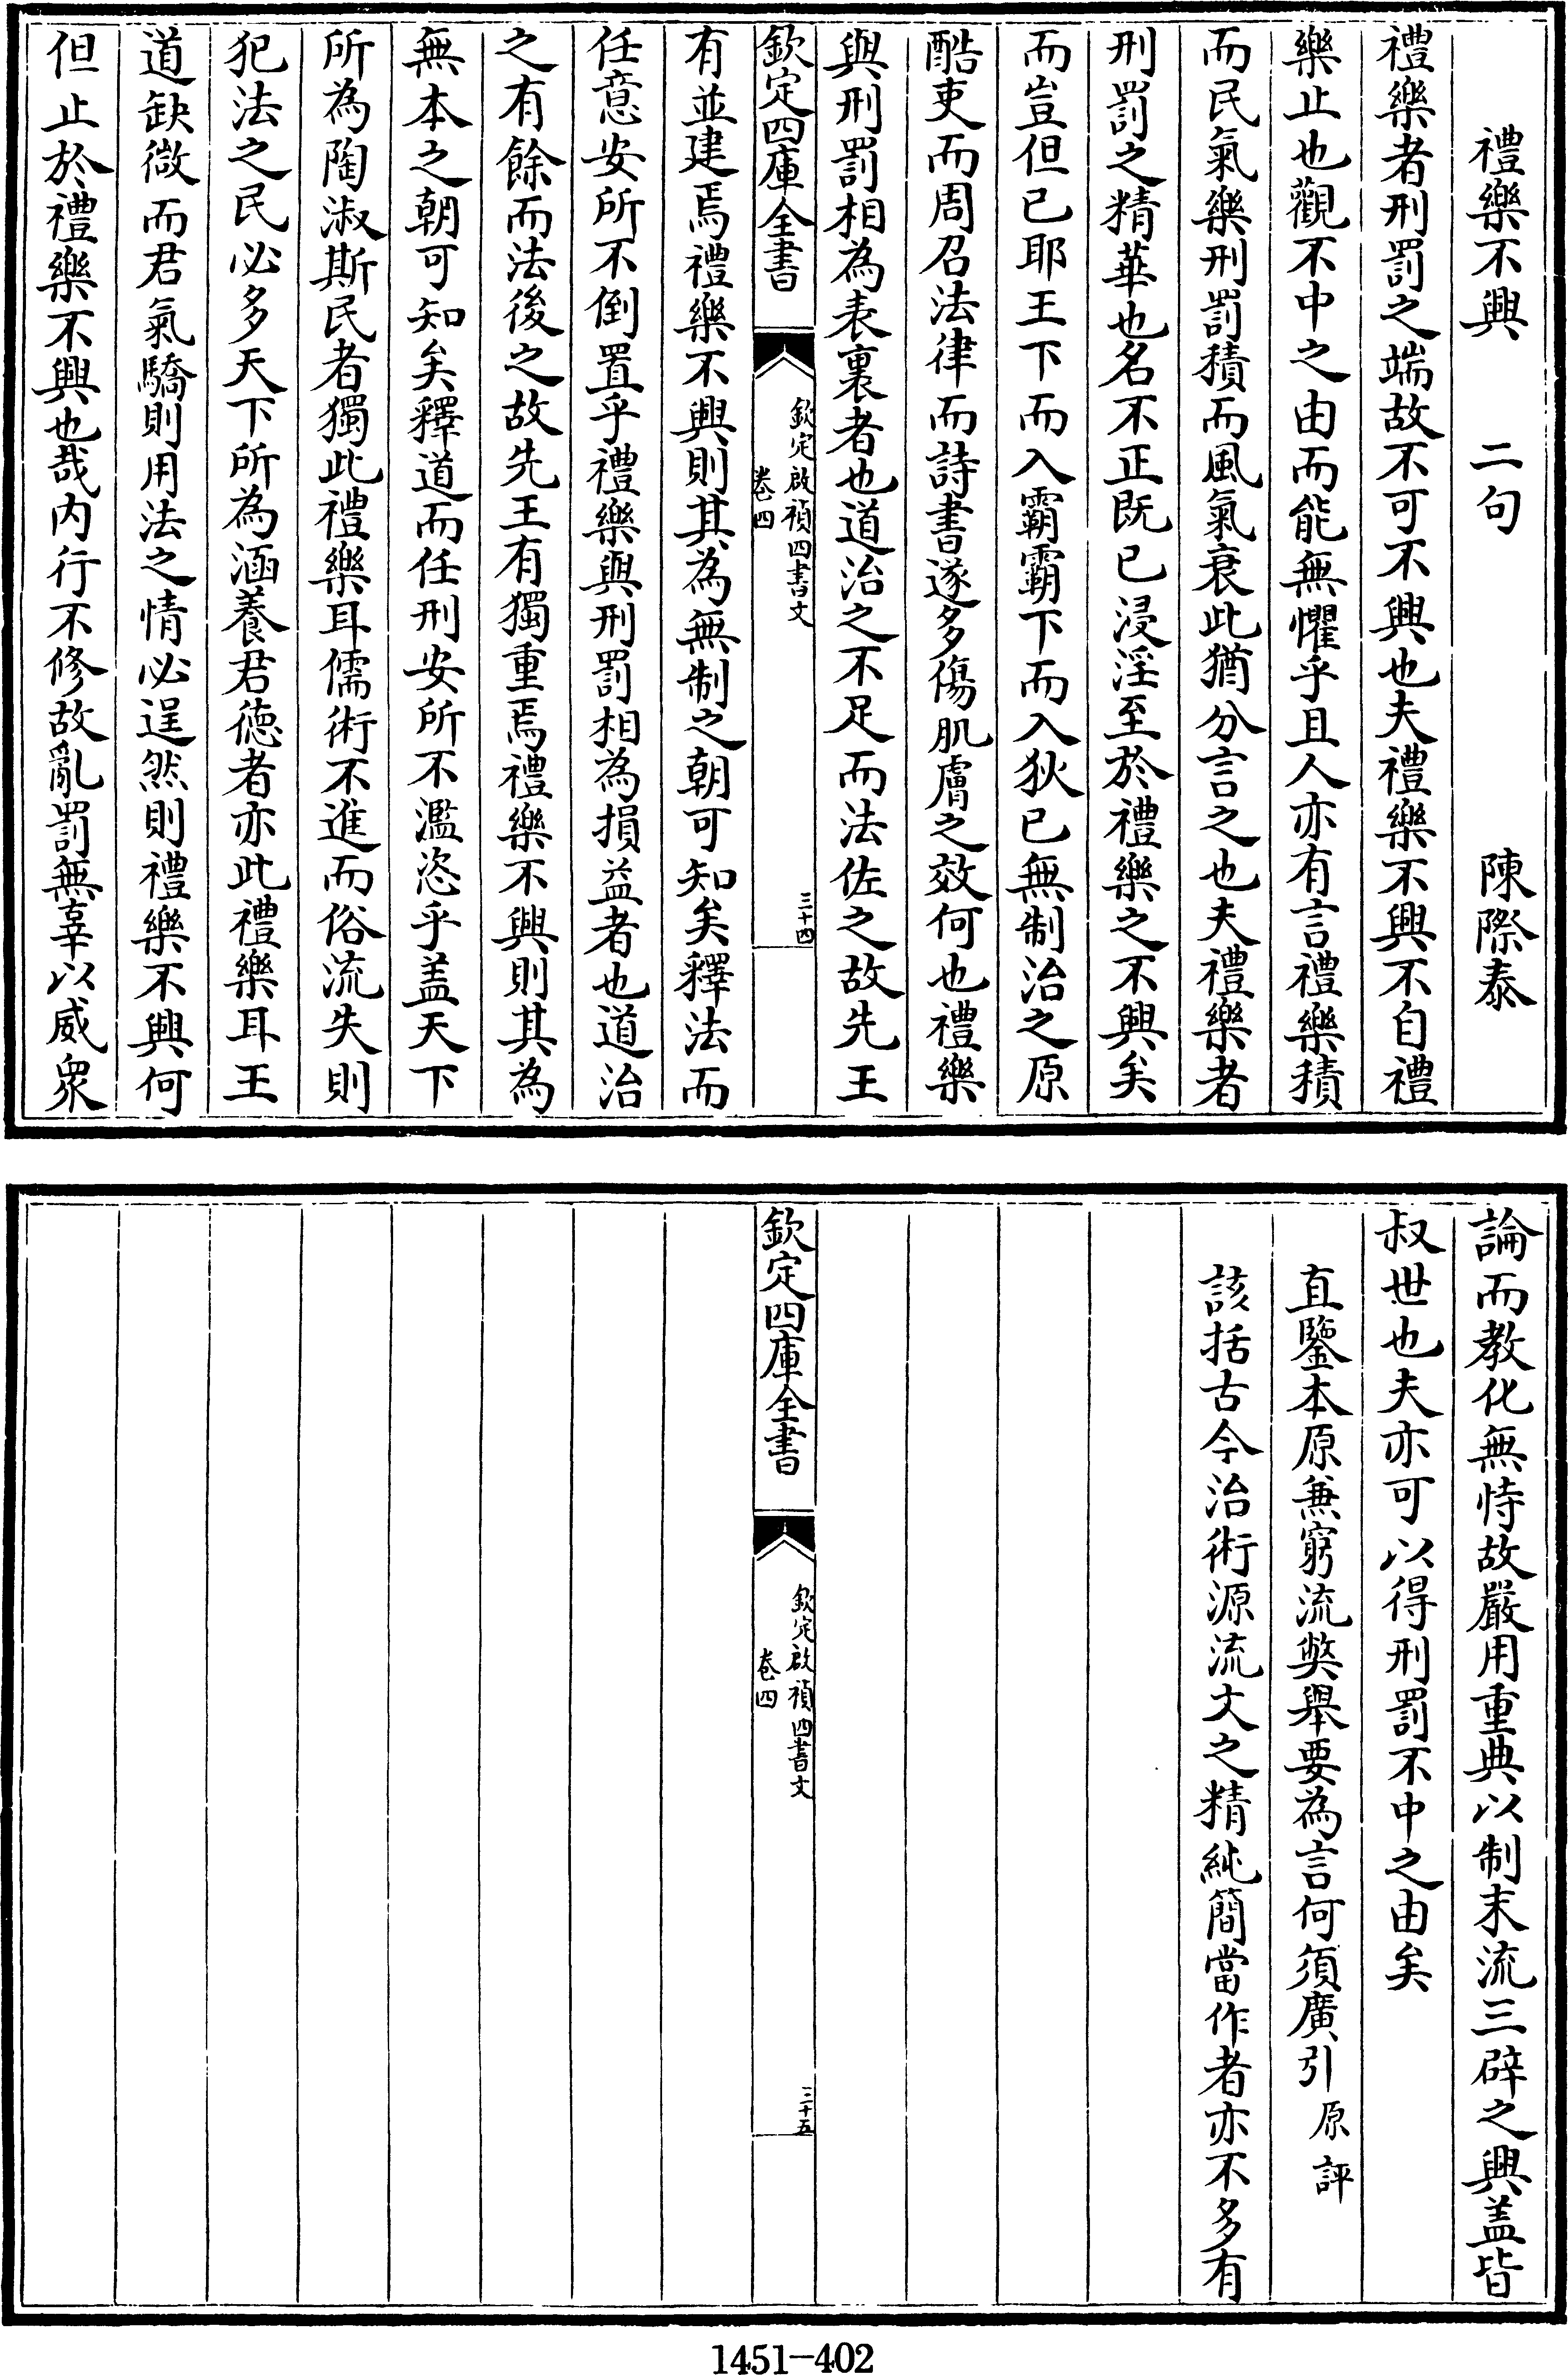 禮樂不興　二句　陳際泰
禮樂者刑罰之端故不可不興也夫禮樂不興不自禮
樂止也觀不中之由而能無懼乎且人亦有言禮樂積
而民氣樂刑罰積而風氣衰此猶分言之也夫禮樂者
刑罰之精華也名不正既已浸淫至於禮樂之不興矣
而豈但已耶王下而入霸霸下而入狄已無制治之原
酷吏而周召法律而詩書遂多傷肌膚之效何也禮樂
與刑罰相為表裏者也道治之不足而法佐之故先王
欽定四庫全書
欽定啟禎四書文
卷四
三十四
有並建焉禮樂不興則其為無制之朝可知矣釋法而
任意安所不倒置乎禮樂與刑罰相為損益者也道治
之有餘而法後之故先王有獨重焉禮樂不興則其為
無本之朝可知矣釋道而任刑安所不濫恣乎盖天下
所為陶淑斯民者獨此禮樂耳儒術不進而俗流失則
犯法之民必多天下所為涵養君德者亦此禮樂耳王
道缺微而君氣驕則用法之情必逞然則禮樂不興何
但止於禮樂不興也哉内行不修故亂罰無辜以威衆
論而教化無恃故嚴用重典以制末流三辟之興盖皆
叔世也夫亦可以得刑罰不中之由矣
直鑒本原兼窮流獘舉要為言何須廣引原評
該括古今治術源流文之精純簡當作者亦不多有
欽定四庫全書
欽定啟禎四書文
卷四
三十五
1451-402